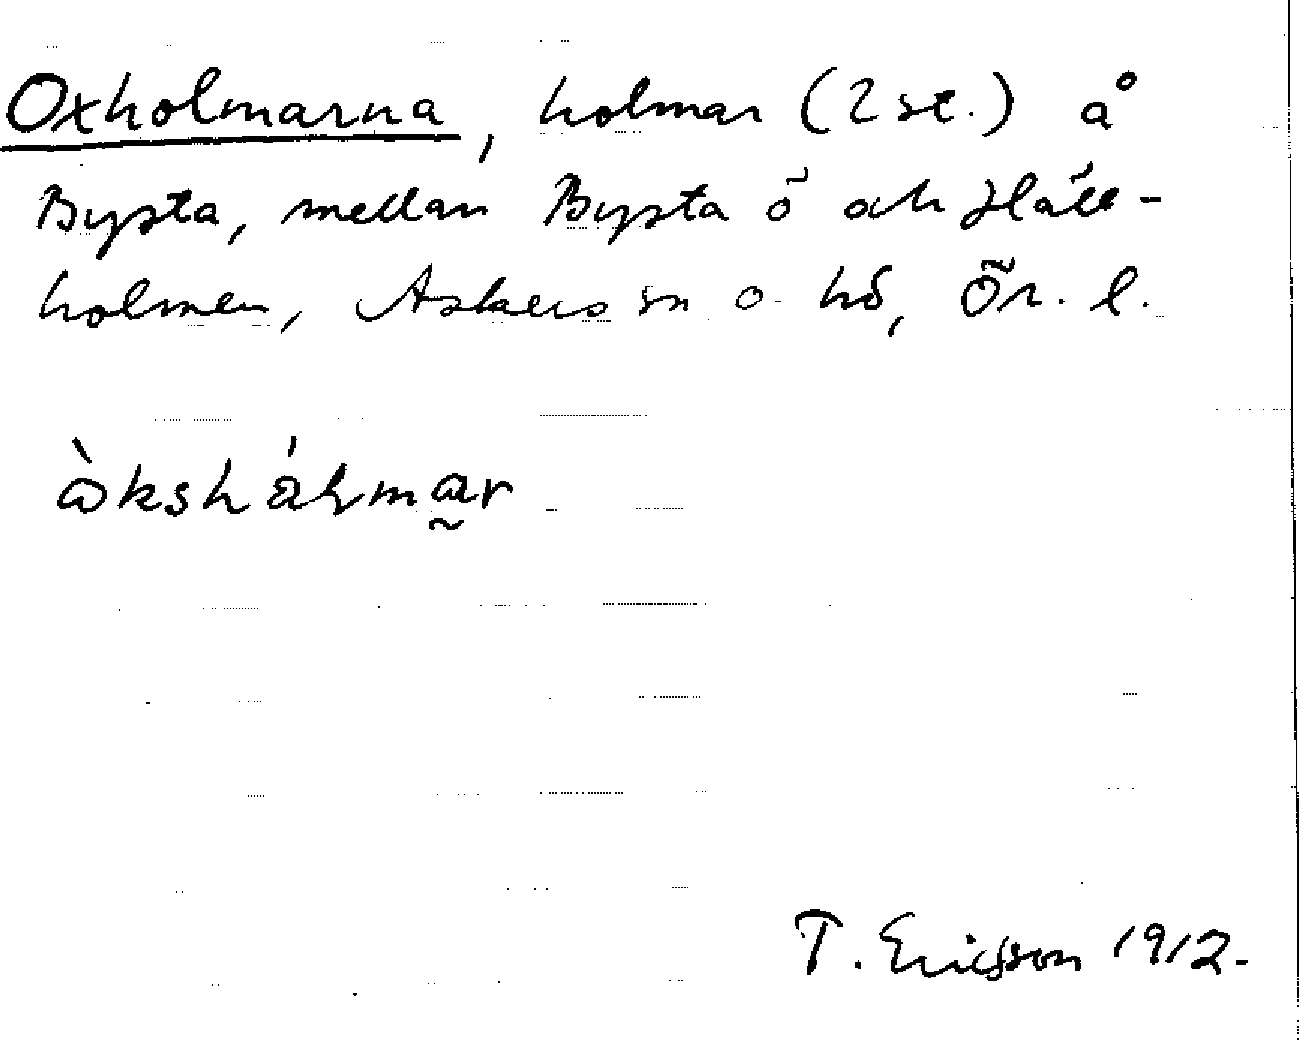 Oxholmarna, holmar (2 st.) å
Bysta, mellan Bysta ö och Håll-
holmen, Askers sn o. hd, Ör. l.
T. Ericsson 1912.